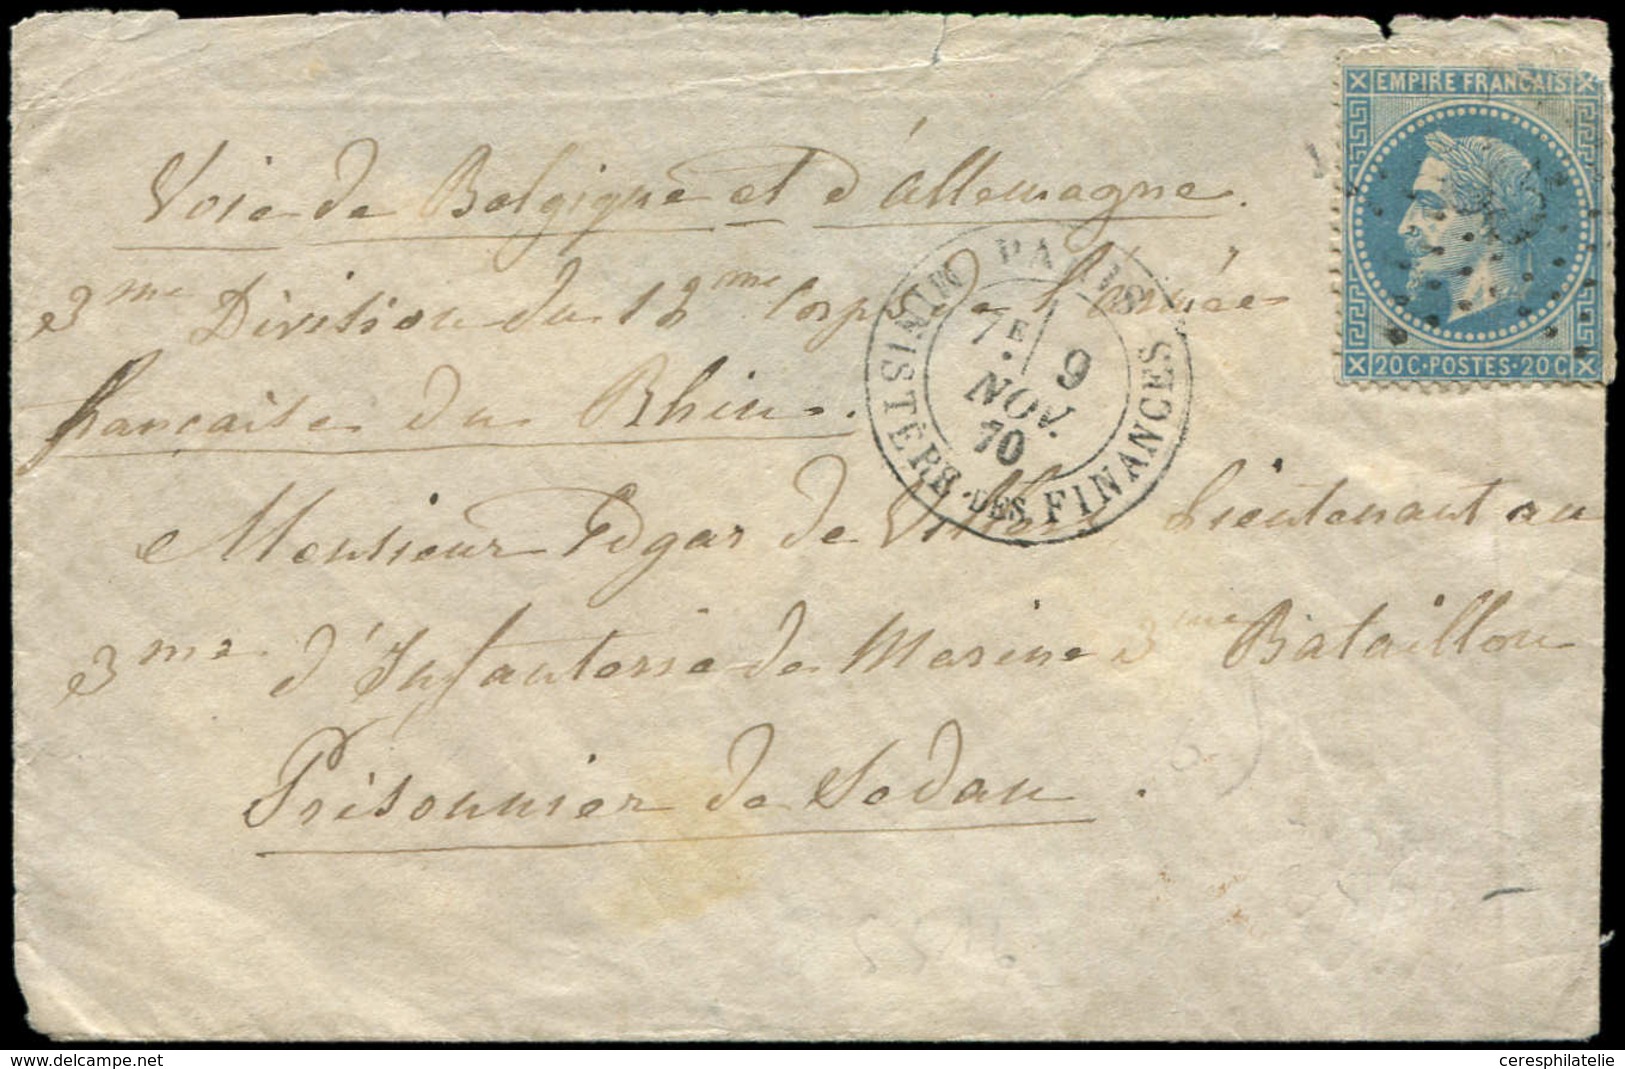 EMPIRE FRANÇAIS
20 C · POSTES · 20 C
Voie de Belgique et d'Allemagne.
3me Division du 12me Corps de l'armée
française du Rhin.
PARIS
MINISTÈRE · DES FINANCES
7E 9
NOV.
70
Monsieur Edgar de Lieutenant au
3me d'Infanterie de Marine 3me Bataillon
Prisonnier de Sedan.
www.delcampe.net
ceresphilatelie